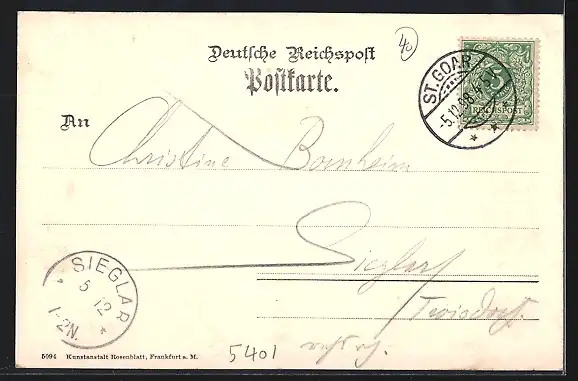 40
Deutsche Reichspost
Postkarte.
ST. GOAR
5.12.98.
5
REICHSPOST
An
Christine Bornheim
Sieglar
SIEGLAR
* 5 12 *
1-2N.
5401
5094 Kunstanstalt Rosenblatt, Frankfurt a. M.